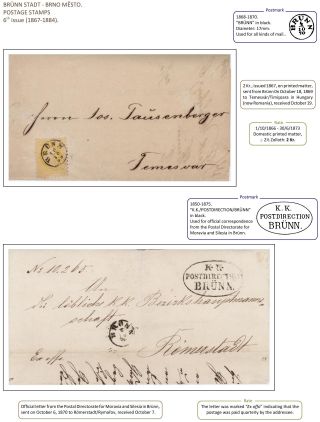 BRÜNN STADT - BRNO MĚSTO.
POSTAGE STAMPS
6th Issue (1867-1884).
Postmark
1868-1870.
"BRÜNN" in black.
Diameter: 17mm.
Used for all kinds of mail.
BRÜNN
2 Kr., issued 1867, on printed matter,
sent from Brünn on October 18, 1869
to Temesvár/Timișoara in Hungary
(now Romania), received October 19.
Rate
1/10/1866 - 30/6/1873
Domestic printed matter,
2 Kr.
Herrn Jos. Tausenberger
BRÜNN
Temesvar
Postmark
1850-1875.
"K.K./POSTDIRECTION/BRÜNN"
in black.
Used for official correspondence
from the Postal Directorate for
Moravia and Silesia in Brünn.
K. K.
POSTDIRECTION
BRÜNN.
No 10.265
K. K.
POSTDIRECTION
BRÜNN.
An
löbliche K.K. Bezirkshauptmann
schaft
BRÜNN
Ex offo
Römerstadt
Official letter from the Postal Directorate for Moravia and Silesia in Brünn,
sent on October 6, 1870 to Römerstadt/Rýmařov, received October 7.
Rate
The letter was marked "Ex offo" indicating that the
postage was paid quarterly by the addressee.